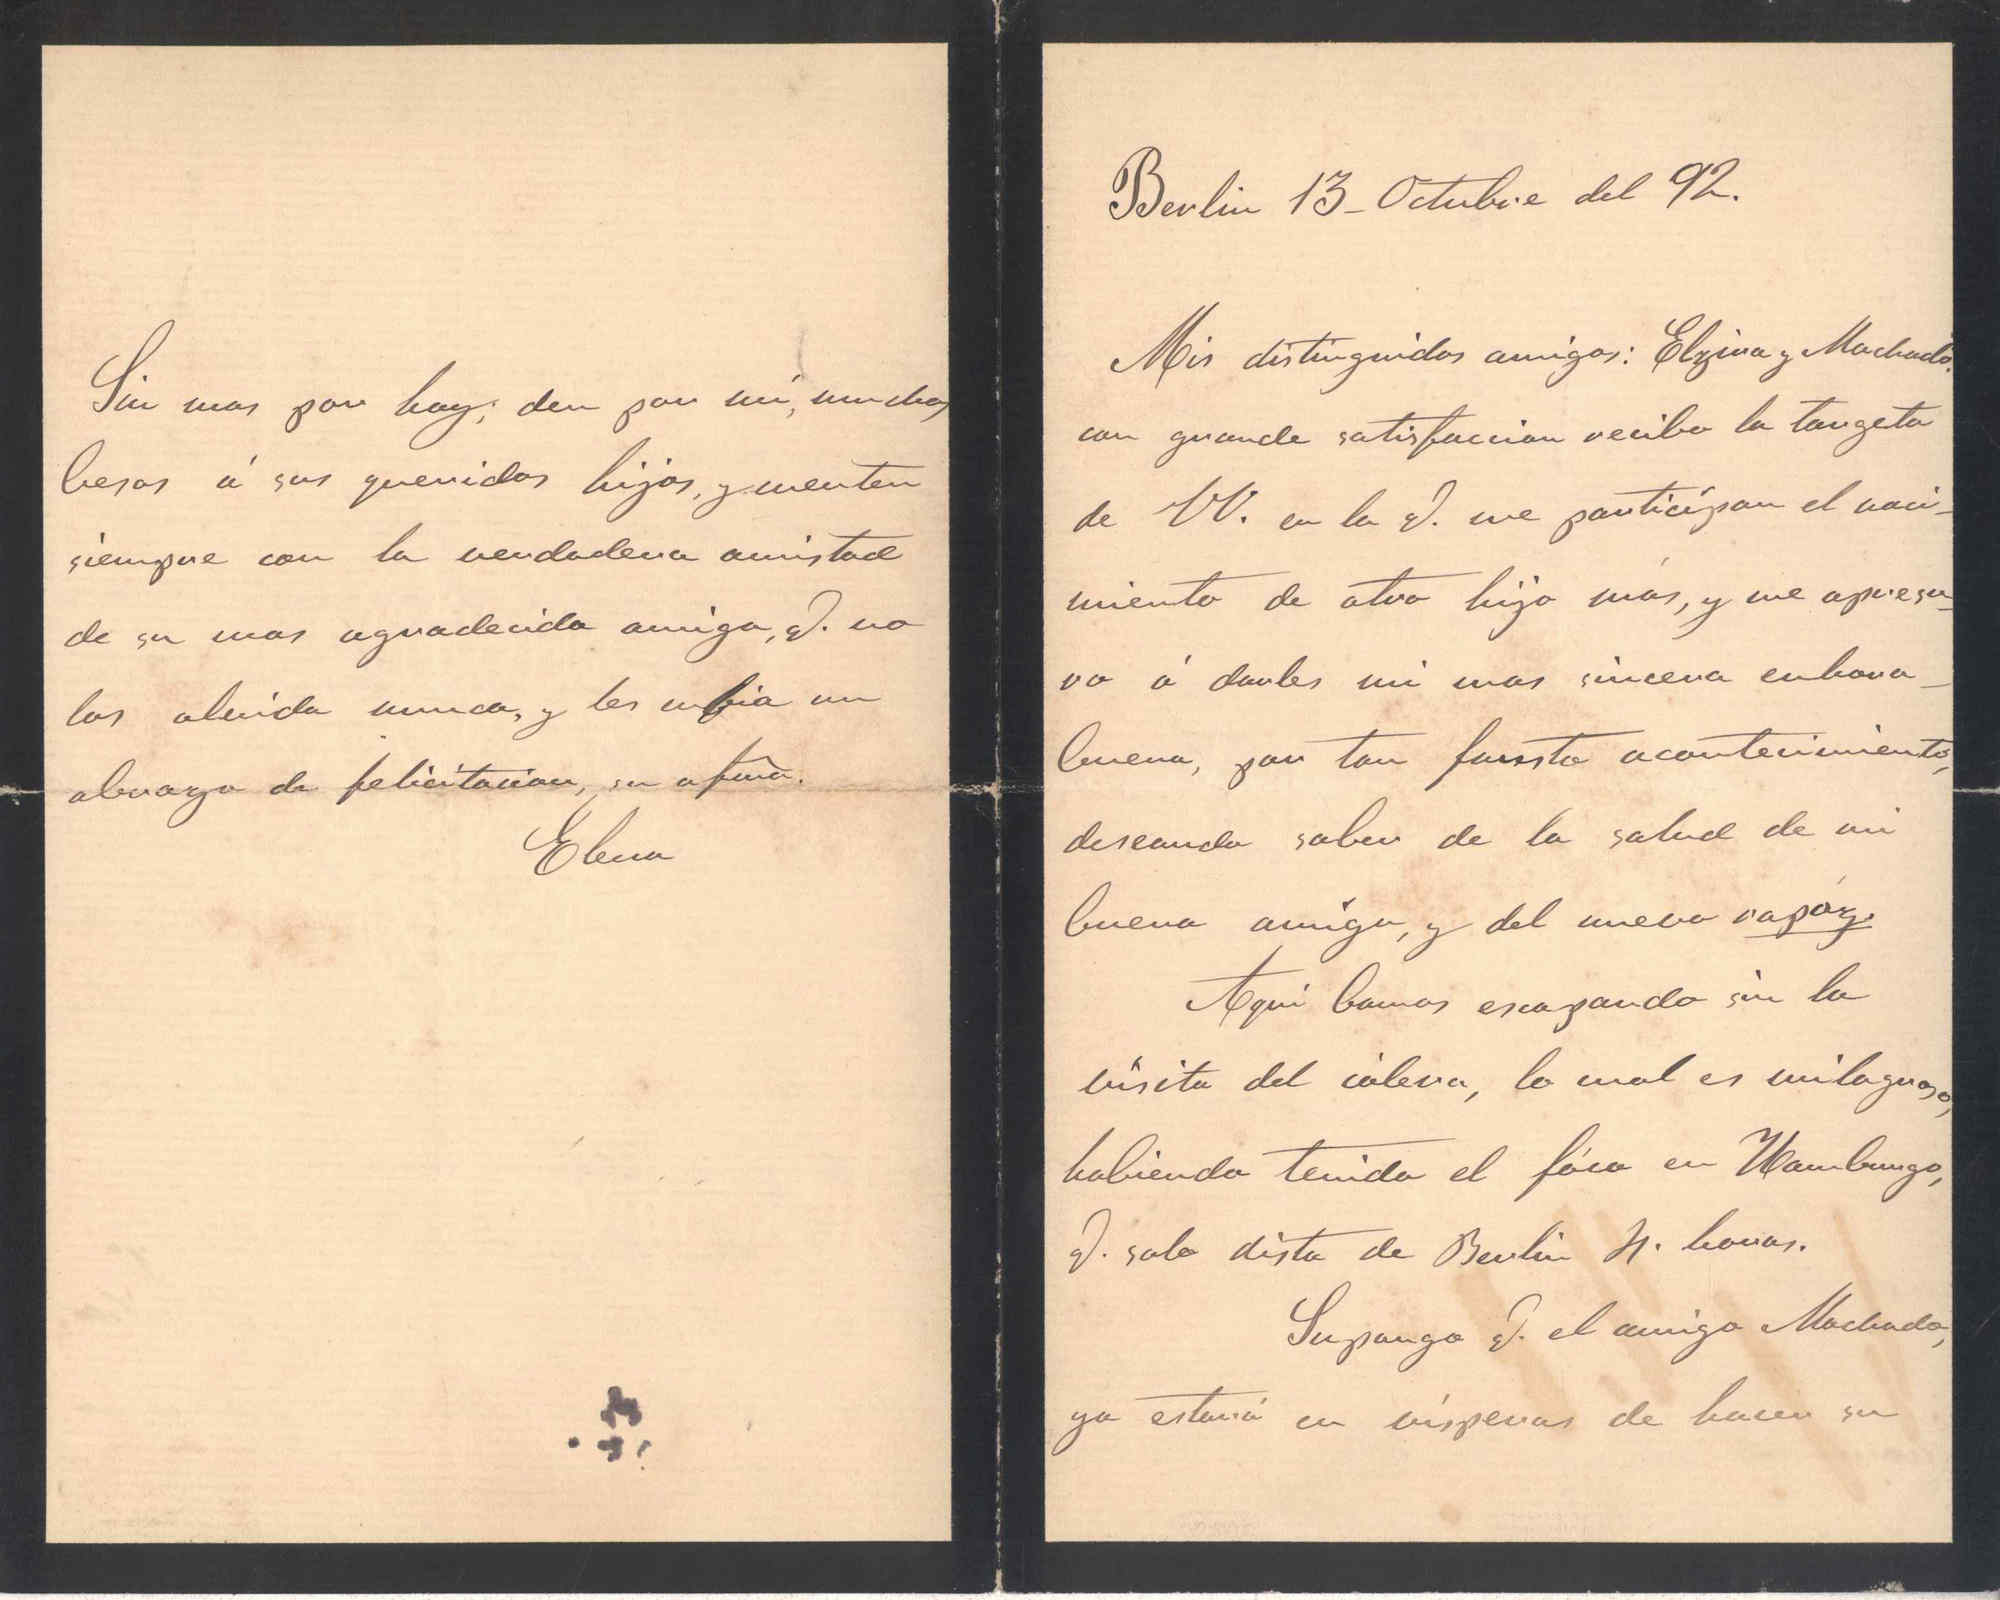 Berlin 13 - Octubre del 92.
Mis distinguidos amigos: Elzira y Machado.
con grande satisfaccion recibo la targeta
de VV. en la q. me participan el naci-
miento de otro hijo más, y me apresu-
ro á darles mi mas sincera enhora-
buena, por tan fausto acontecimiento,
deseando saber de la salud de mi
buena amiga, y del nuevo rapáz.
Aqui bamos escapando sin la
visita del cólera, lo cual es milagroso,
habiendo tenido el fóco en Hamburgo,
q. solo dista de Berlin 4. horas.
Supongo q. el amigo Machado,
ya estará en vísperas de hacer su
Sin mas por hoy; den por mí, muchos
besos á sus queridos hijos, y
siempre con la verdadera amistad
de su mas agradecida amiga, q. no
los olvida nunca, y les enbia un
abrazo de felicitacion, su afma.
Elena